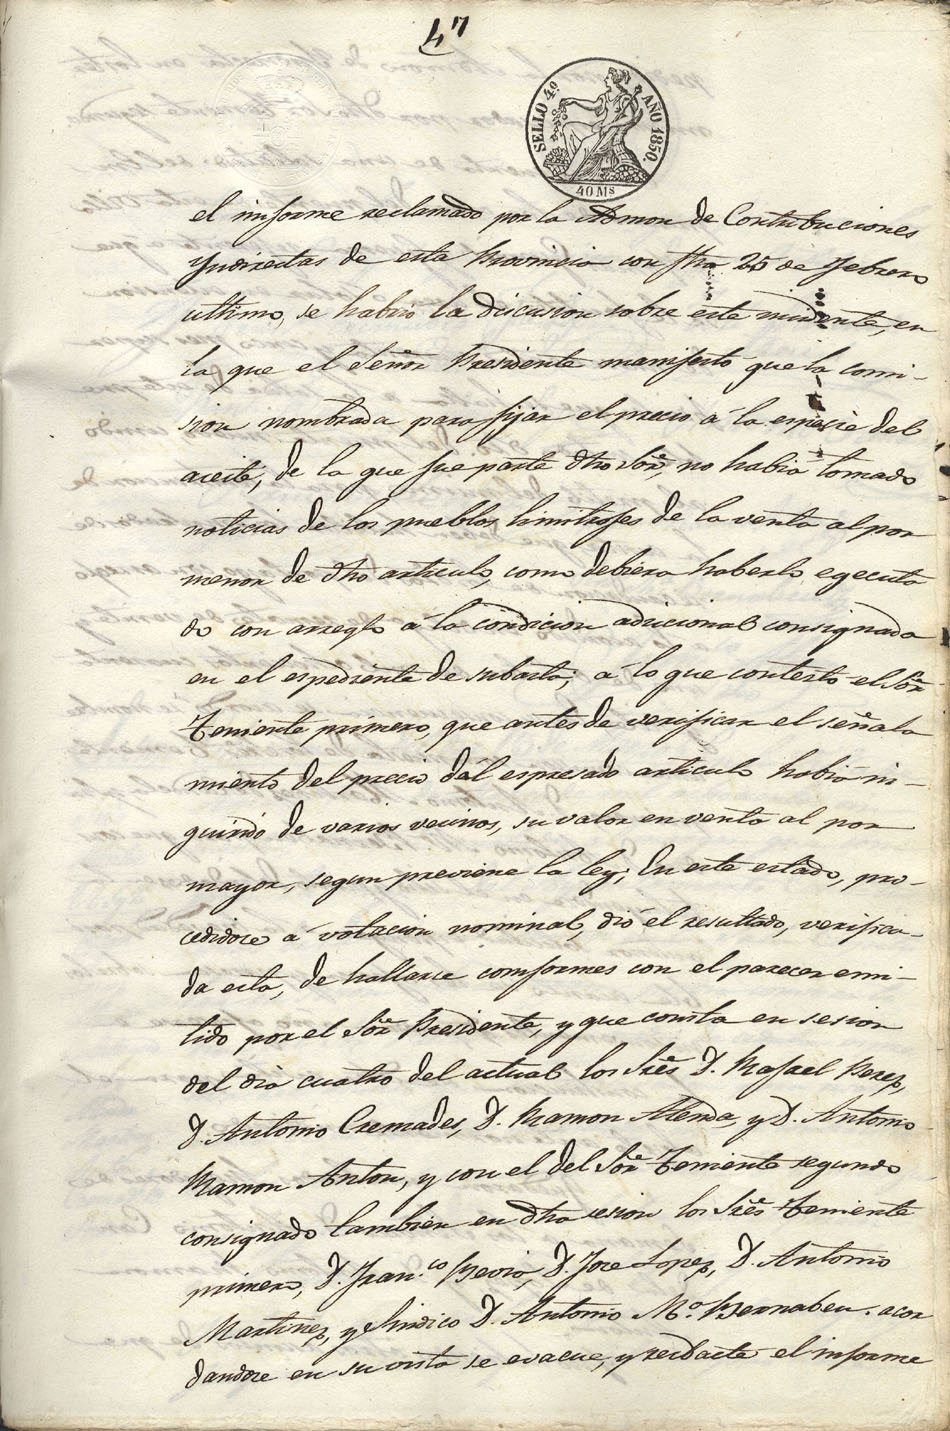 47
SELLO 4º AÑO 1850.
40 Ms
el imforme reclamado por la Admon de Contribuciones
Yndirectas de esta Provincia con fha 25 de Febrero
ultimo, se habrió la discusion sobre este incidente, en
la que el Señor Presidente manifestó que la comi-
sion nombrada para fijar el precio á la especie del
aceite, de la que fue parte dho Sor, no habia tomado
noticias de los pueblos limitrofes de la venta al por
menor de dho articulo, como debiera haberlo egecuta
do con arreglo á la condicion adicional consignada
en el espediente de subasta; á lo que contestó el Sor
Teniente primero, que antes de verificar el señala
miento del precio dél espresado articulo habia in-
quirido de varios vecinos, su valor en venta al por
mayor, segun previene la ley; En este estado, pro-
cedidose á votacion nominal, dió el resultado, verifica-
da esta, de hallarse comformes con el parecer emi-
tido por el Sor Presidente, y que consta en sesion
del dia cuatro del actual los Sres D. Rafael Perez,
D. Antonio Cremades, D. Ramon Alenda, y D. Antonio
Ramon Anton, y con el del Sor Teniente segundo
consignado tambien en dha sesion los Sres Teniente
primero, D. Fran.co Bevia, D. Jose Lopez, D. Antonio
Martinez, y Sindico D. Antonio Mª. Bernabeu. acor
dandose en su vista se evacue, y redacte el informe